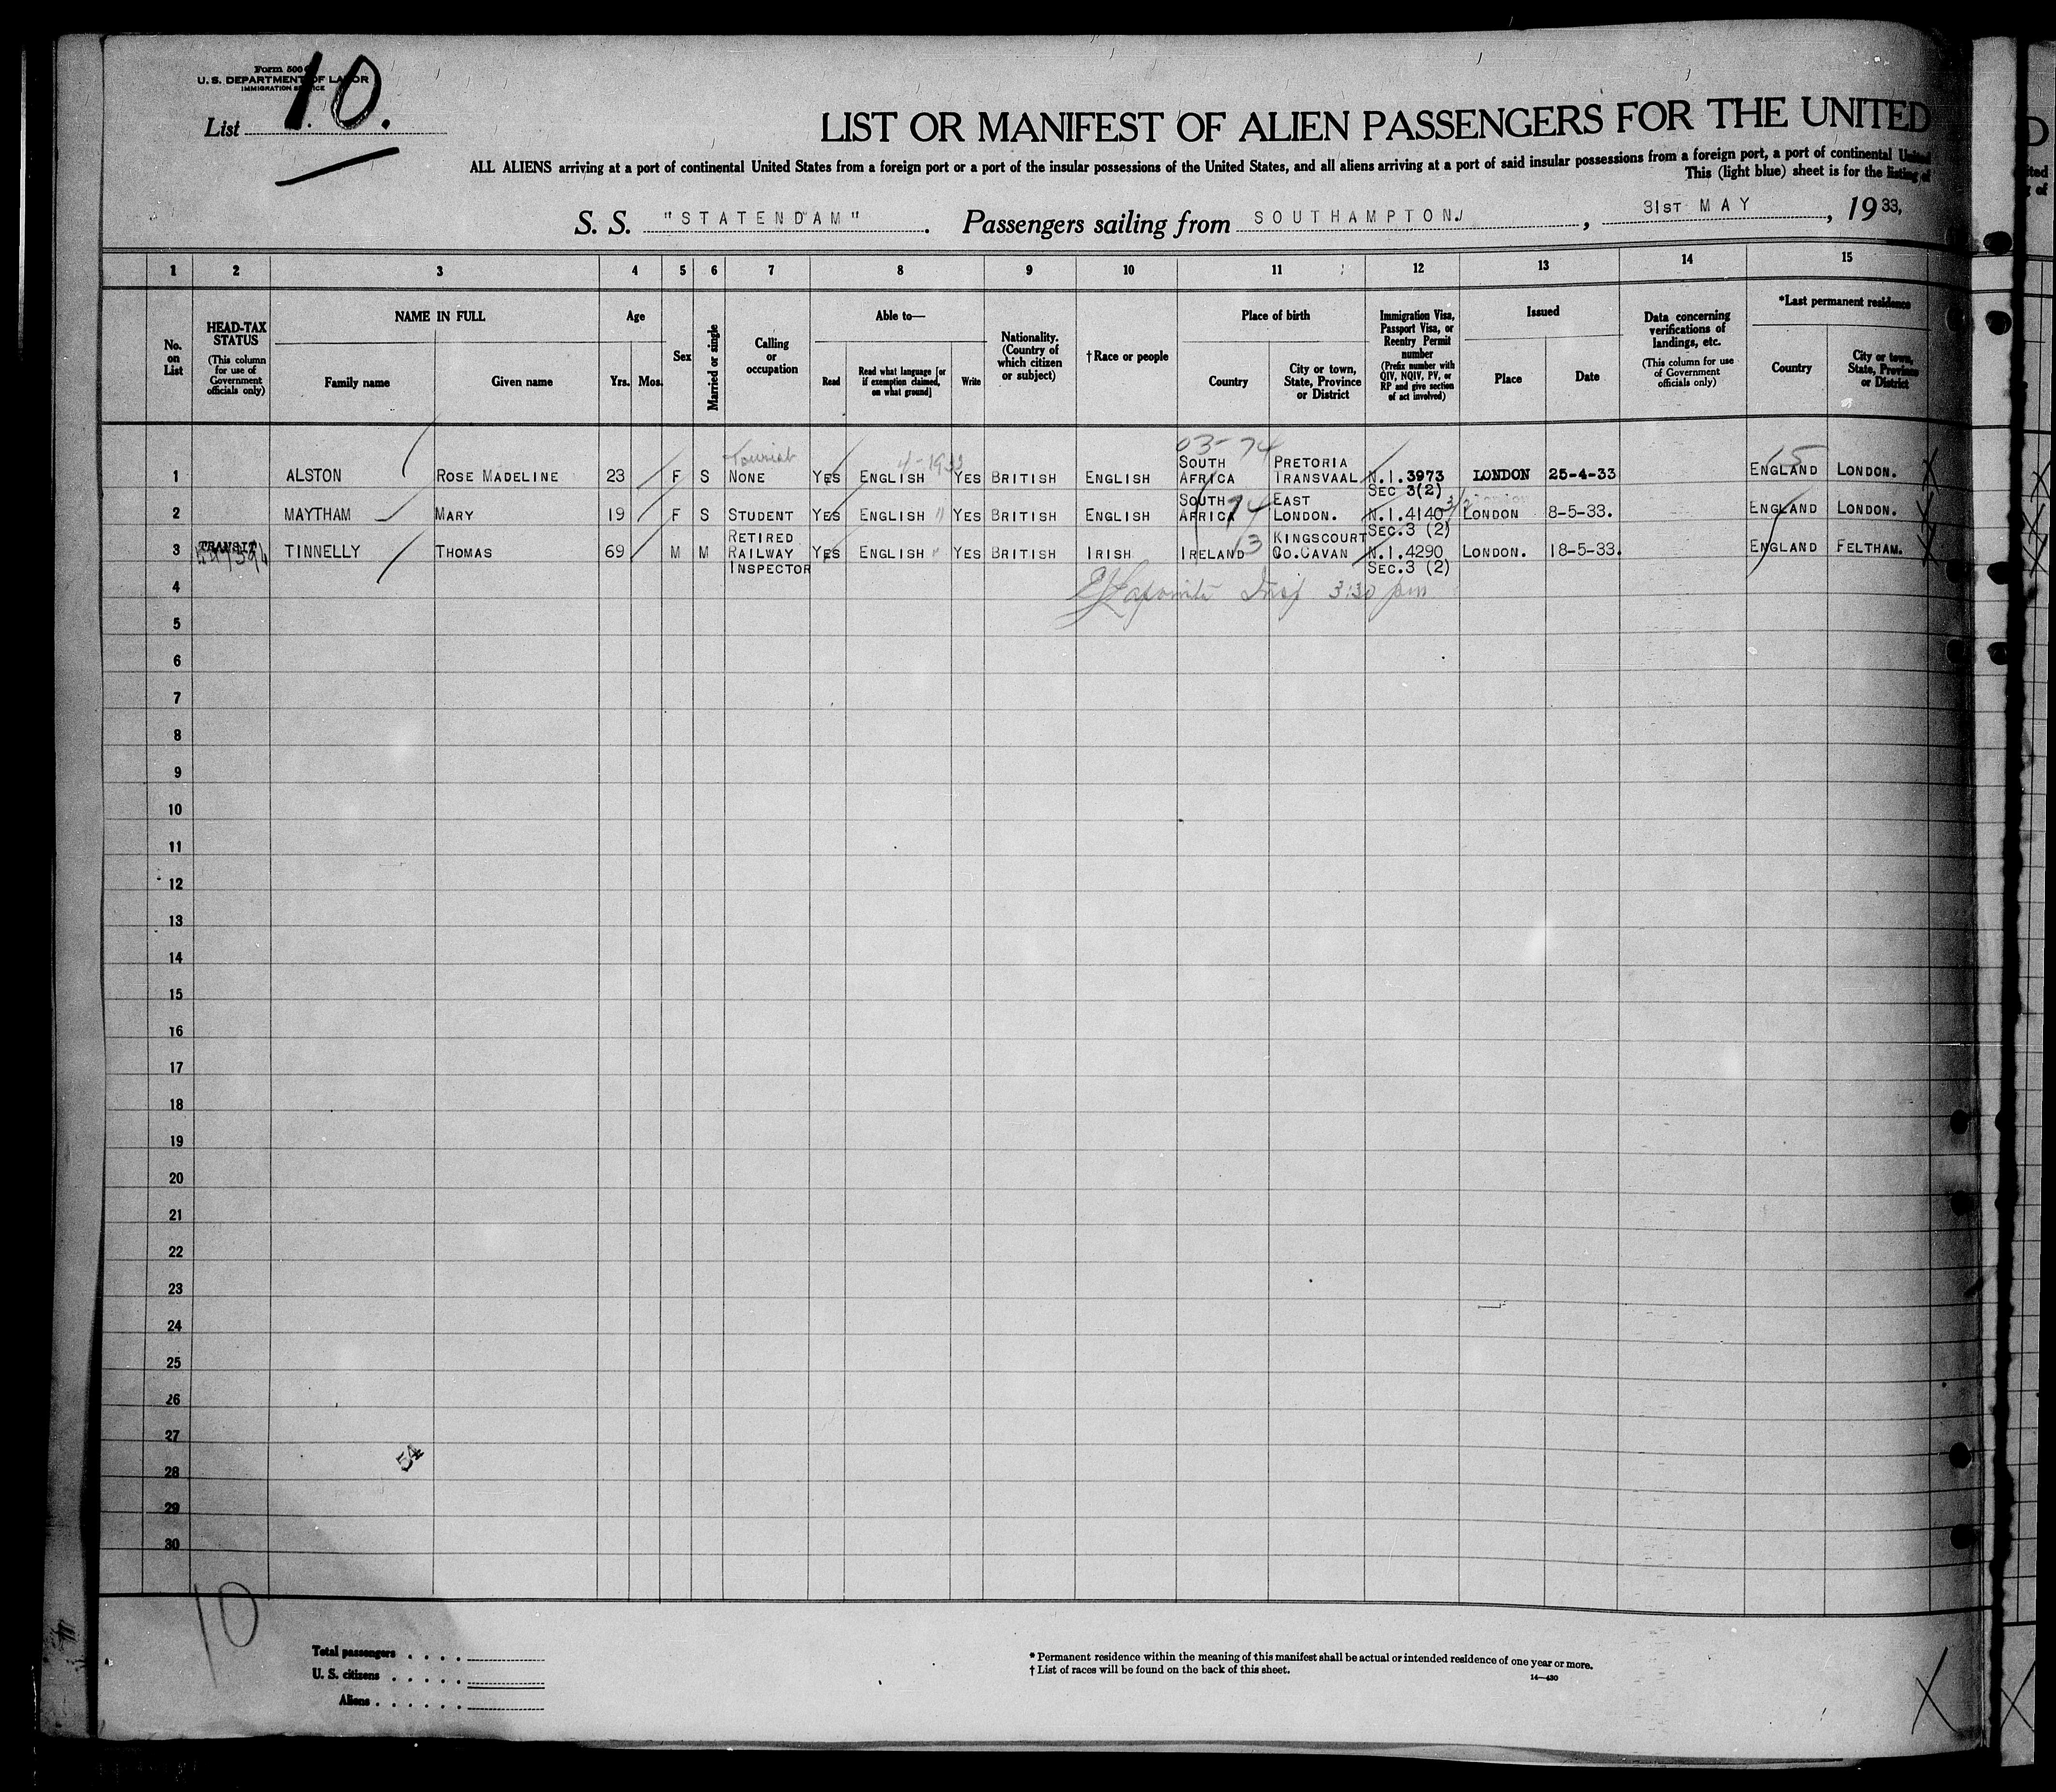 Form 500
U. S. DEPARTMENT OF LABOR
IMMIGRATION SERVICE
List 10.
LIST OR MANIFEST OF ALIEN PASSENGERS FOR THE UNITED
ALL ALIENS arriving at a port of continental United States from a foreign port or a port of the insular possessions of the United States, and all aliens arriving at a port of said insular possessions from a foreign port, a port of continental United
This (light blue) sheet is for the listing of
S. S. "STATENDAM". Passengers sailing from SOUTHAMPTON, 31ST MAY, 1933,
1 2 3 4 5 6 7 8 9 10 11 12 13 14 15
No. on List
HEAD-TAX STATUS
(This column for use of Government officials only)
NAME IN FULL
Family name
Given name
Age
Yrs. Mos.
Sex
Married or single
Calling or occupation
Able to—
Read
Read what language [or if exemption claimed, on what ground]
Write
Nationality. (Country of which citizen or subject)
†Race or people
Place of birth
Country
City or town, State, Province or District
Immigration Visa, Passport Visa, or Reentry Permit number
(Prefix number with QIV, NQIV, PV, or RP and give section of act involved)
Issued
Place
Date
Data concerning verifications of landings, etc.
(This column for use of Government officials only)
*Last permanent residence
Country
City or town, State, Province or District
03-74
Tourist
4-1933
15
1 ALSTON ROSE MADELINE 23 F S NONE YES ENGLISH YES BRITISH ENGLISH SOUTH AFRICA PRETORIA TRANSVAAL N.I.3973 SEC 3(2) LONDON 25-4-33 ENGLAND LONDON.
2 MAYTHAM MARY 19 F S STUDENT YES ENGLISH " YES BRITISH ENGLISH SOUTH AFRICA 74 EAST LONDON. N.I.4140 SEC.3 (2) LONDON 8-5-33. ENGLAND LONDON.
3 TRANSIT TINNELLY THOMAS 69 M M RETIRED RAILWAY INSPECTOR YES ENGLISH " YES BRITISH IRISH IRELAND 13 KINGSCOURT CO.CAVAN N.I.4290 SEC.3 (2) LONDON. 18-5-33. ENGLAND FELTHAM.
4 Insp 3:30 pm
5
6
7
8
9
10
11
12
13
14
15
16
17
18
19
20
21
22
23
24
25
26
27
54
28
29
30
10
Total passengers
U. S. citizens
Aliens
* Permanent residence within the meaning of this manifest shall be actual or intended residence of one year or more.
† List of races will be found on the back of this sheet.
14—430